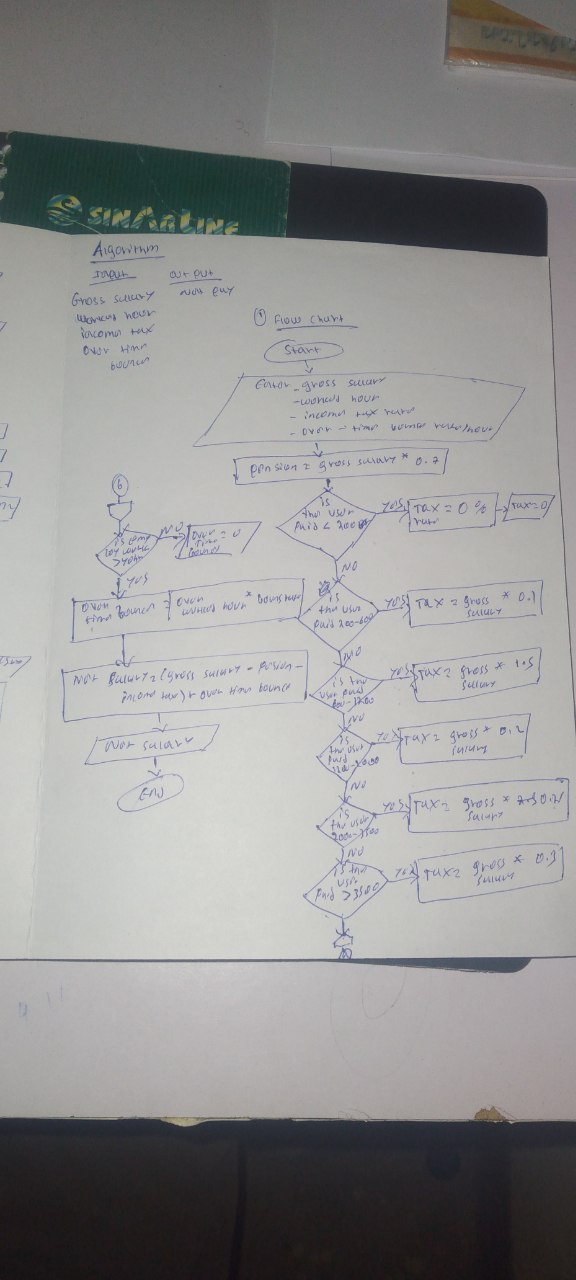 SINARLINE
Algorithm
Input
out put
Gross salary
Net pay
worked hour
income tax
Over time
bounce
Flow chart
Start
Enter - gross salary
- worked hour
- income tax rate
- over - time bounce rate/hour
pension = gross salary * 0.7
is
the user
paid < 200
YES
Tax = 0 %
rate
Tax = 0
NO
is
the user
paid 200-600
YES
Tax = gross * 0.1
salary
NO
is the
user paid
600-1200
YES
Tax = gross * 1.5
salary
NO
is
the user
paid
1200-2000
YES
Tax = gross * 0.2
salary
NO
is
the user
2000-3500
YES
Tax = gross *
salary
NO
is the
user
paid >3500
YES
Tax = gross * 0.3
salary
NO
Over
time = 0
bounce
YES
Over
time bounce = over
worked hour *
Net salary = (gross salary - pension -
income tax) + over time bounce
Net salary
End